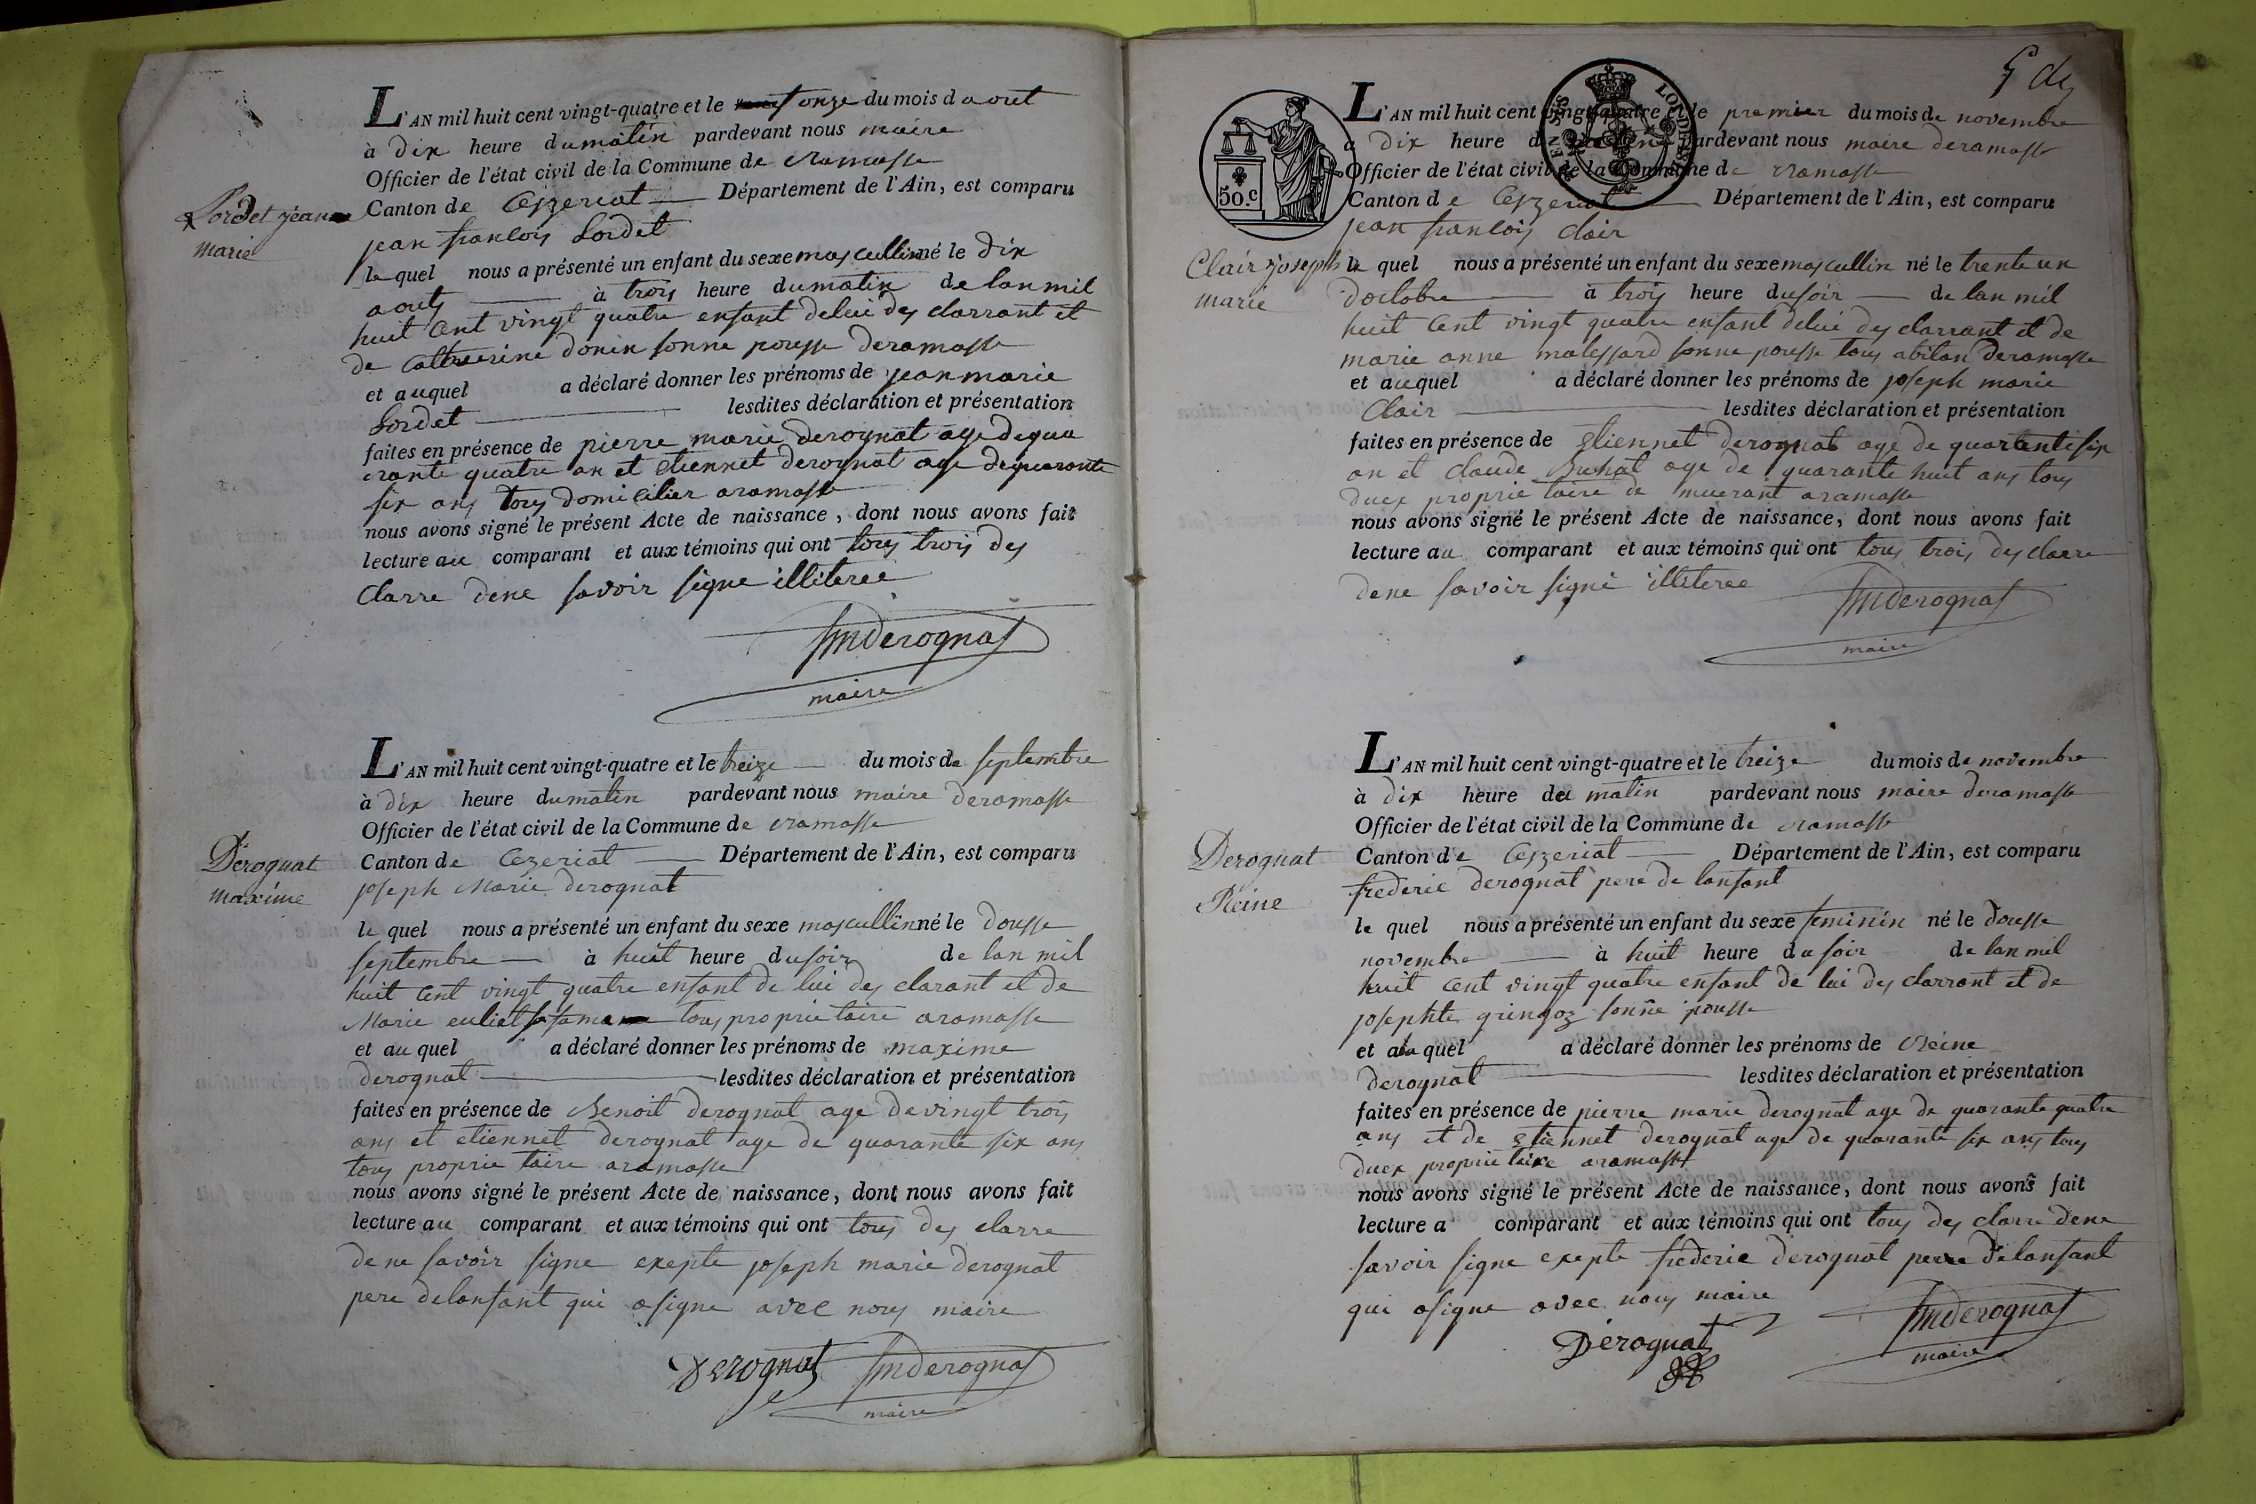 L'AN mil huit cent vingt-quatre et le onze du mois d aout
à dix heure du matin pardevant nous maire
Officier de l'état civil de la Commune de ramasse
Canton de Cezzeriat Département de l'Ain, est comparu
jean francois Sordet
Sordet jean
marie
le quel nous a présenté un enfant du sexe mascullin né le dix
aout à trois heure du matin de lan mil
huit cent vingt quatre enfant de lui des clarrant et
de catherine donin sonne pousse deramasse
et auquel a déclaré donner les prénoms de jean marie
Sordet lesdites déclaration et présentation
faites en présence de pierre marie derognat age de qua
rante quatre an et etiennet derognat age de quarante
six ans tous domicilier aramasse
nous avons signé le présent Acte de naissance, dont nous avons fait
lecture au comparant et aux témoins qui ont tous trois des
clarre dene savoir signe illiteree
pmderognat
maire
L'AN mil huit cent vingt-quatre et le treize du mois de septembre
à dix heure du matin pardevant nous maire deramasse
Officier de l'état civil de la Commune de ramasse
Canton de Cezeriat Département de l'Ain, est comparu
joseph Marie derognat
Derognat
maxime
le quel nous a présenté un enfant du sexe mascullin né le dousse
septembre à huit heure du soir de lan mil
huit cent vingt quatre enfant de lui des clarant et de
Marie euliet sa fame tous proprie taire aramasse
et au quel a déclaré donner les prénoms de maxime
derognat lesdites déclaration et présentation
faites en présence de Benoit derognat age de vingt trois
ans et etiennet derognat age de quarante six ans
tous proprie taire aramasse
nous avons signé le présent Acte de naissance, dont nous avons fait
lecture au comparant et aux témoins qui ont tous des clarre
de ne savoir signe exepte joseph marie derognat
pere delanfant qui asigne avec nous maire
Derognat pmderognat
maire
5 de
50.c
L'AN mil huit cent vingt-quatre et le premier du mois de novembre
à dix heure du matin pardevant nous maire deramasse
Officier de l'état civil de la Commune de ramasse
Canton de Cezzeriat Département de l'Ain, est comparu
jean francois clair
Clair joseph
marie
le quel nous a présenté un enfant du sexe mascullin né le trente un
doctobre à trois heure du soir de lan mil
huit cent vingt quatre enfant delui des clarrant et de
marie anne malessard sonne pousse tous abitan deramasse
et auquel a déclaré donner les prénoms de joseph marie
Clair lesdites déclaration et présentation
faites en présence de etiennet derognat age de quarante six
an et claude Buhat age de quarante huit ans tous
duex proprie taire de muerant aramasse
nous avons signé le présent Acte de naissance, dont nous avons fait
lecture au comparant et aux témoins qui ont tous trois des clarre
dene savoir signe illiteree
pmderognat
maire
L'AN mil huit cent vingt-quatre et le treize du mois de novembre
à dix heure du matin pardevant nous maire deramasse
Officier de l'état civil de la Commune de ramasse
Canton de Cezzeriat Département de l'Ain, est comparu
frederic derognat pere de lanfant
Derognat
Reine
le quel nous a présenté un enfant du sexe feminin né le dousse
novembre à huit heure du soir de lan mil
huit cent vingt quatre enfant de lui des clarrant et de
josephte gringoz sonne pousse
et a la quel a déclaré donner les prénoms de Reine
derognat lesdites déclaration et présentation
faites en présence de pierre marie derognat age de quarante quatre
ans et de etiennet derognat age de quarante six ans tous
duex proprie taire aramasse
nous avons signé le présent Acte de naissance, dont nous avons fait
lecture a comparant et aux témoins qui ont tous des clarre dene
savoir signe exepte frederic derognat perre delanfant
qui asigne avec nous maire
Derognat pmderognat
maire